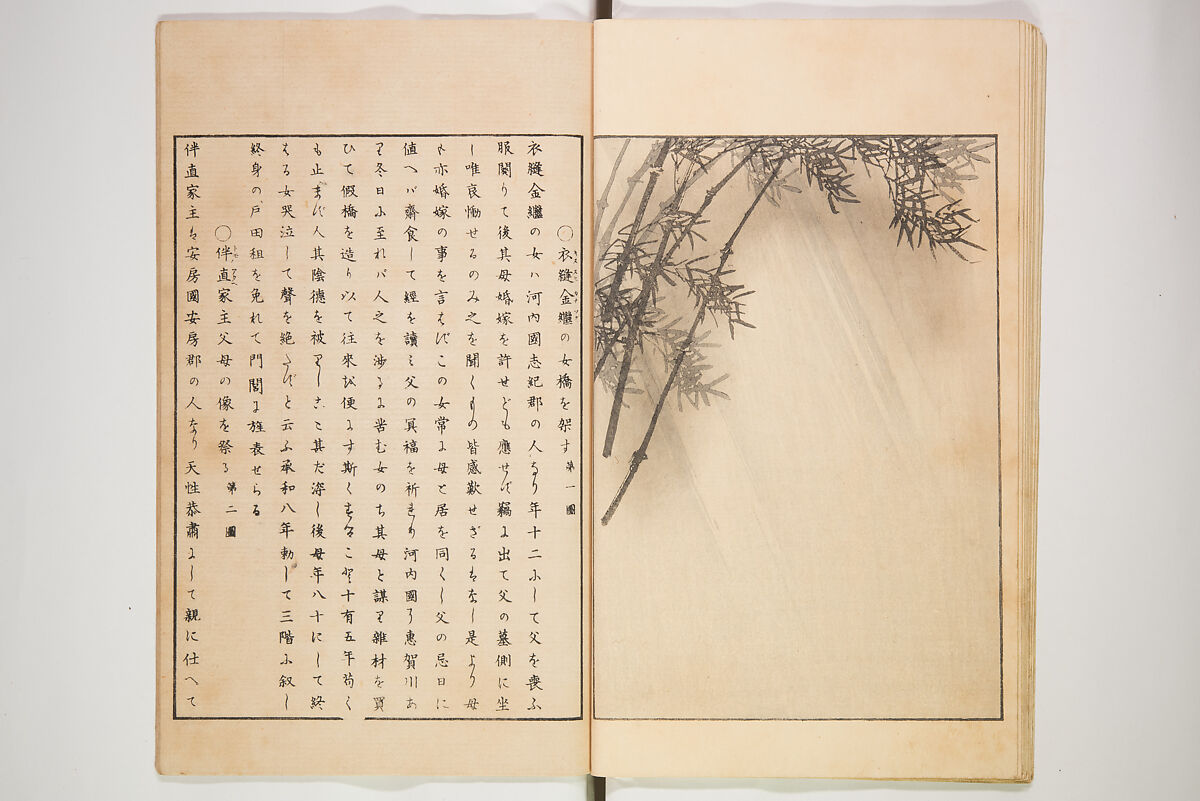 〇衣縫金繼の女橋を架す 第一圖
衣縫金繼の女ハ河內國志紀郡の人なり年十二にして父を喪ふ
服闋りて後其母婚嫁を許せども應せず竊に出て父の墓側に坐
し唯哀慟せるのみ之を聞くもの皆感歎せざるはなし是より母
も亦婚嫁の事を言はずこの女常に母と居を同くし父の忌日に
値へバ齋食して經を讀み父の冥福を祈れり河內國に惠賀川あ
り冬日に至れバ人之を涉るに苦む女のち其母と謀り雜材を買
ひて假橋を造り以て往來に便にす斯くすること十有五年苟く
も止まず人其陰德を被りしこと其だ深し後母年八十にして終
はる女哭泣して聲を絕たずと云ふ承和八年勅して三階に叙し
終身の戶田租を免れて門閭に旌表せらる
〇伴直家主父母の像を祭る 第二圖
伴直家主は安房國安房郡の人なり天性恭肅にして親に仕へて